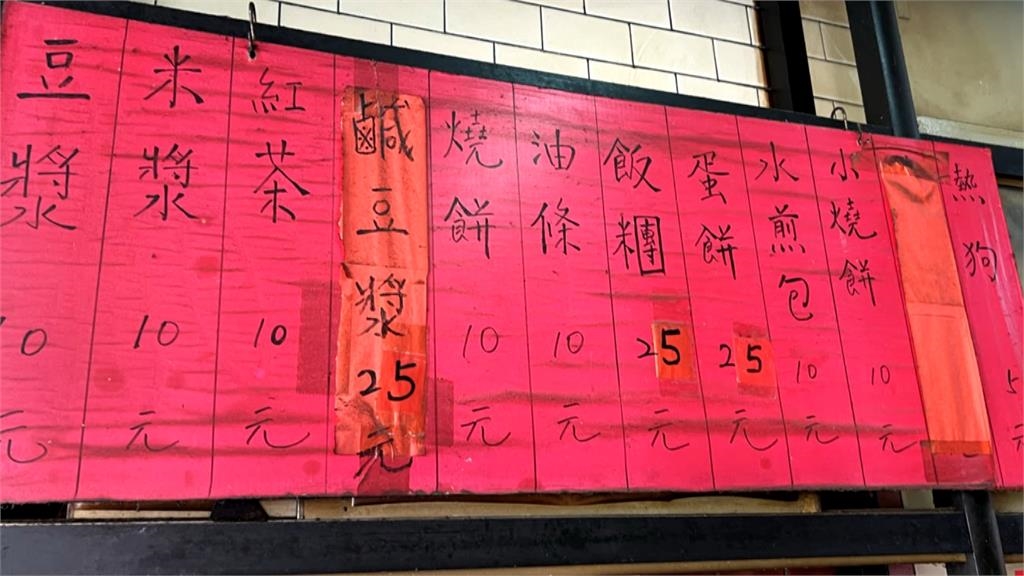 豆漿 10元
米漿 10元
紅茶 10元
鹹豆漿 25元
燒餅 10元
油條 10元
飯糰 25元
蛋餅 25元
水煎包 10元
小燒餅 10元
熱狗 5元